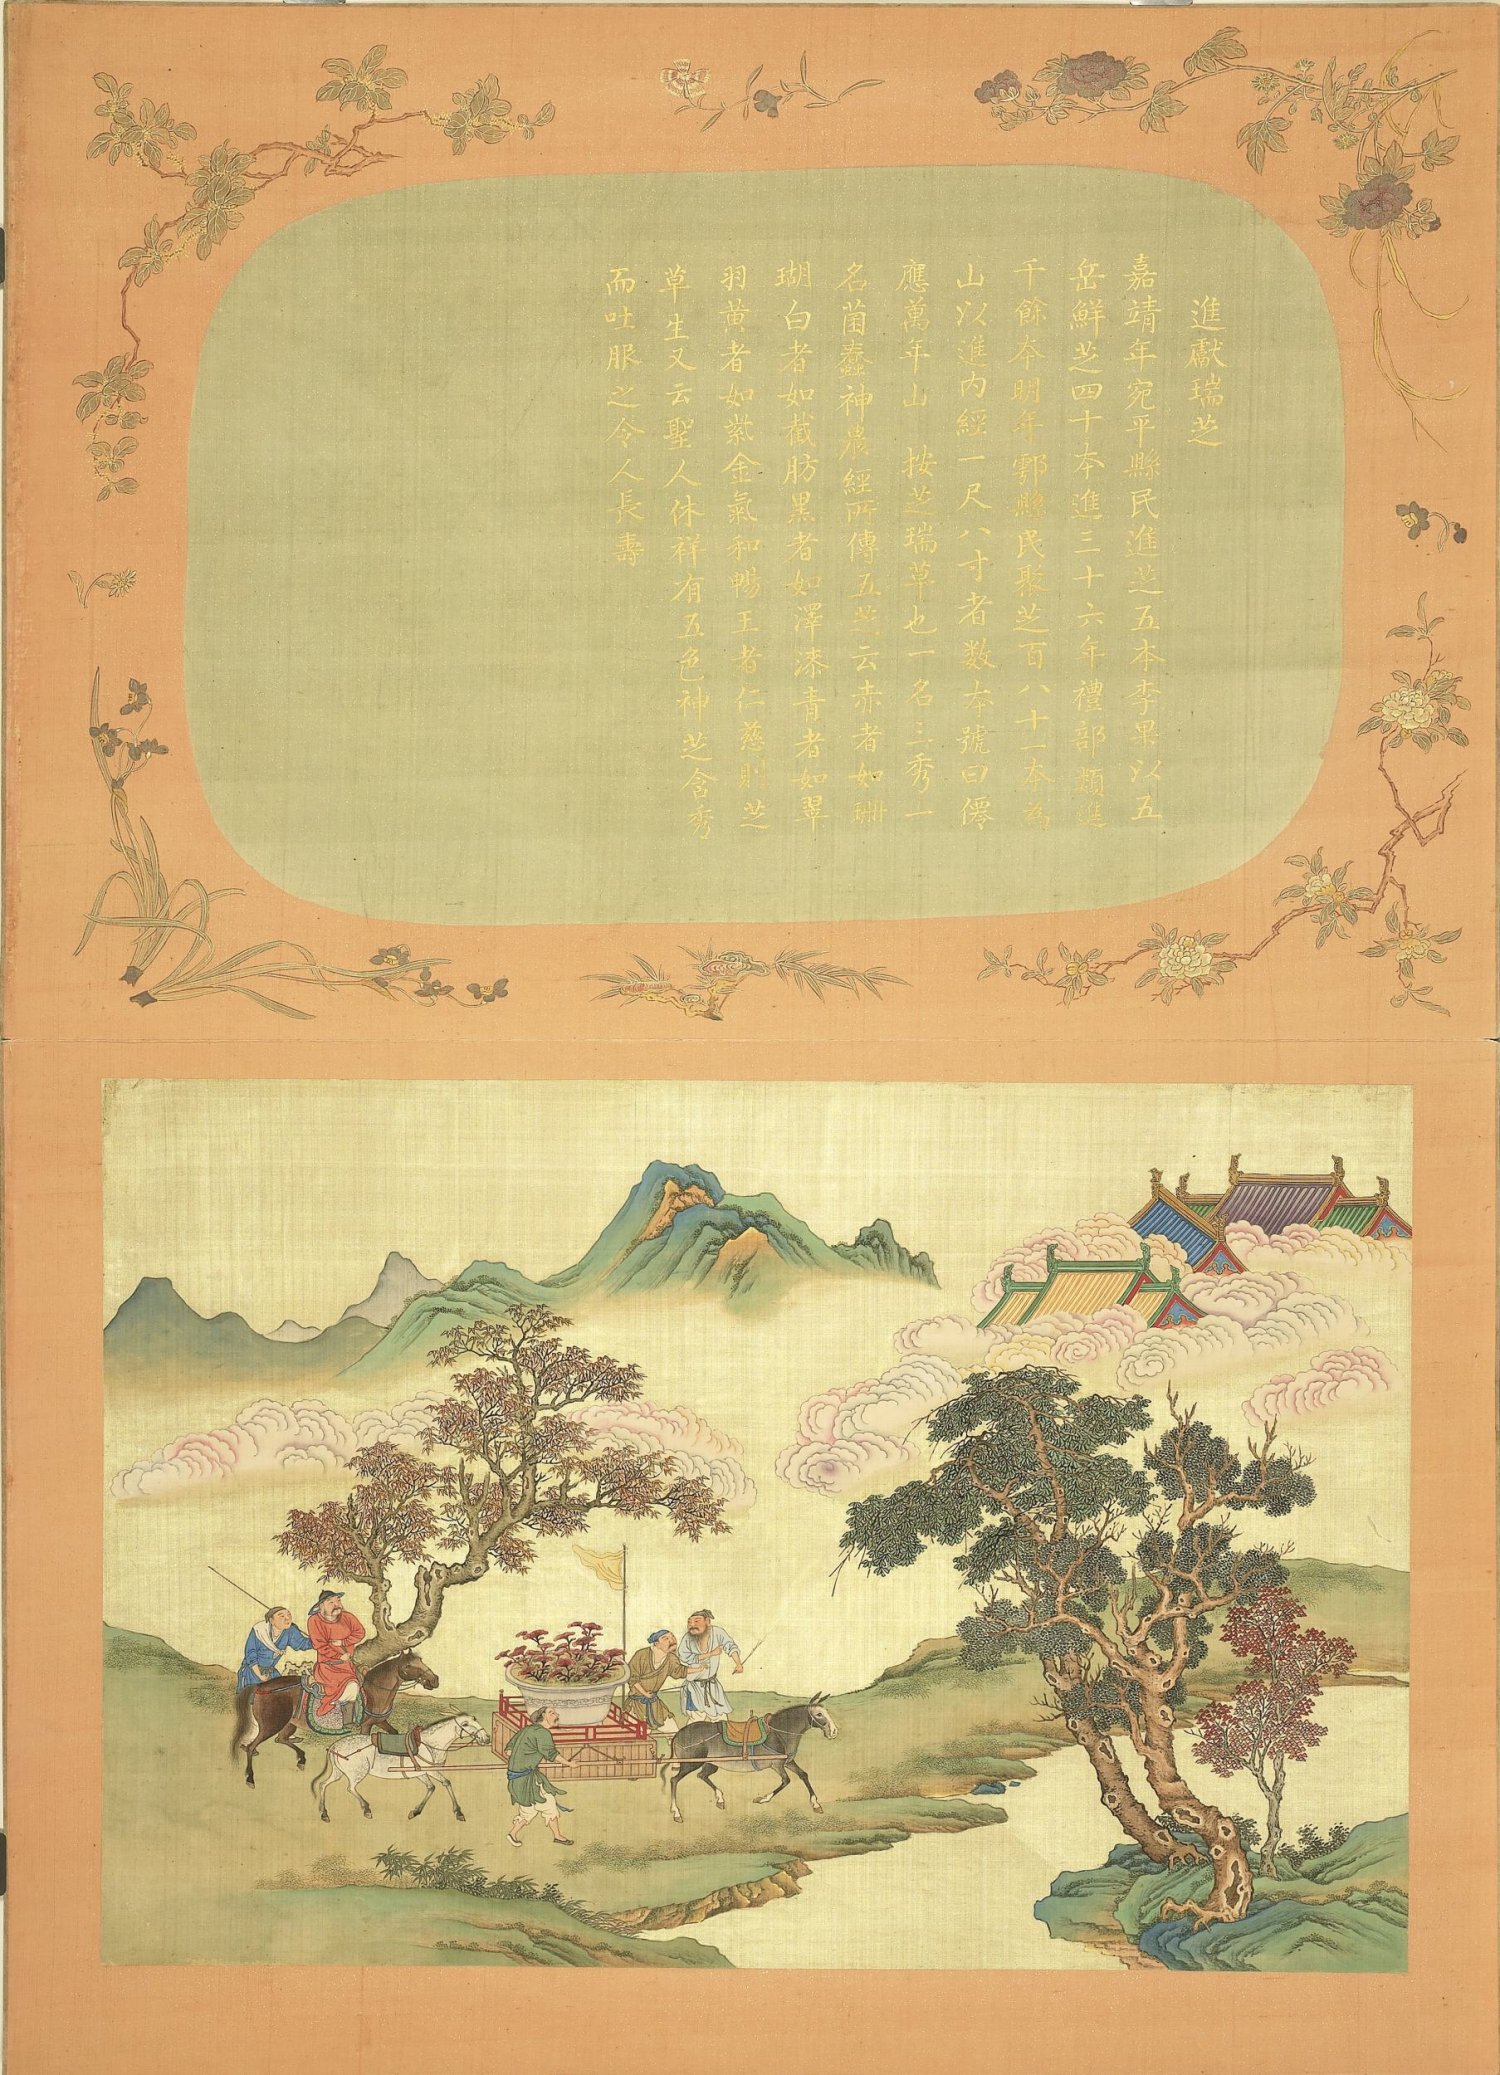 進獻瑞芝
嘉靖年宛平縣民進芝五本李果以五
岳鮮芝四十本進三十六年禮部類進
千餘本明年鄠縣民聚芝百八十一本為
山以進內經一尺八寸者數本號曰僊
應萬年山 按芝瑞草也一名三秀一
名菌蠢神農經所傳五芝云赤者如珊
瑚白者如截肪黑者如澤漆青者如翠
羽黃者如紫金氣和暢王者仁慈則芝
草生又云聖人休祥有五色神芝含秀
而吐服之令人長壽